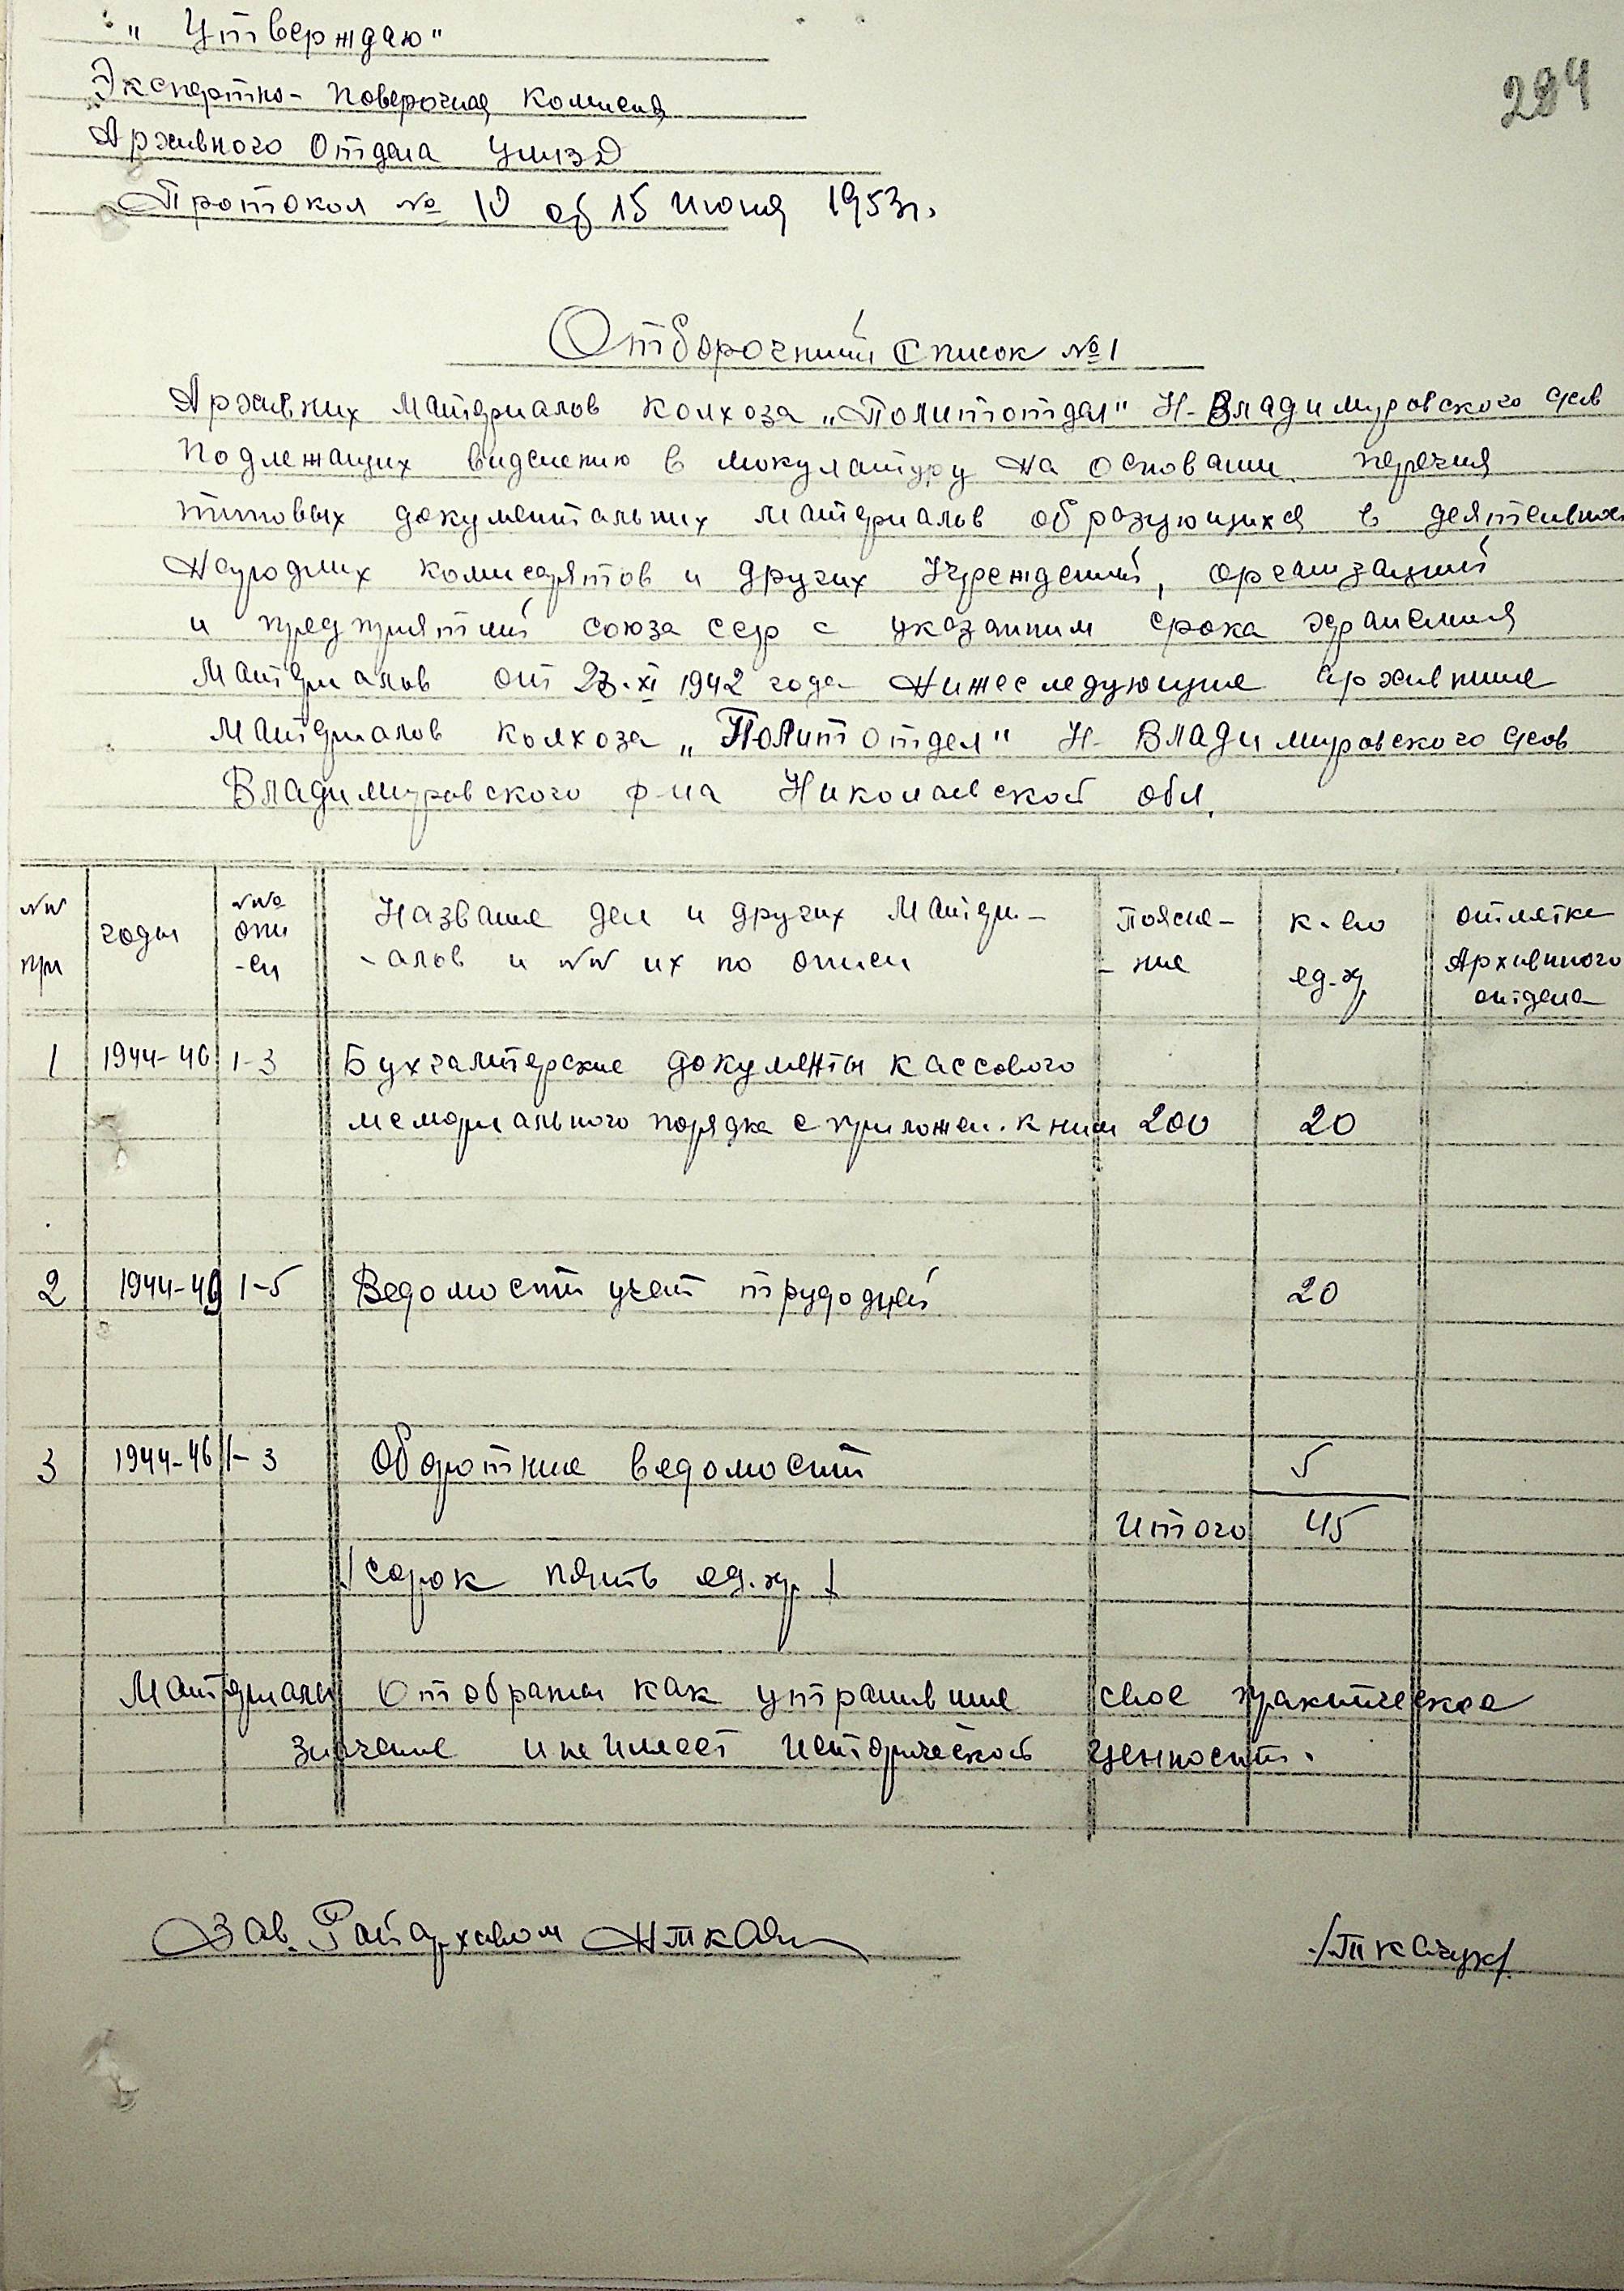 "Утверждаю"
Экспертно- поверочная комисия
Архивного Отдела УМВД
Протокол № 10 об 15 июня 1953г.
284
Отборочний Список №1
Архивних Материалов колхоза „Политотдел" Н- Владимировского
подлежащих виделению в мокулатуру на основании перечня
типовых документальних материалов образующихся в
Народних комисарятов и других Учреждений, организаций
и предприятий союза ССР с указанним срока хранения
Материалов от 1942 года Нижеследующие архивние
Материалов колхоза „Политотдел" Н- Владимировского
Владимировского р-на Николаевской обл.
годы
опи
-си
Название дел и других Матери-
-алов и №№ их по описи
Поясне-
- ние
к-во
ед.х.
отметки
Архивного
отдела
1 1944-46 1-3 Бухгалтерские документы кассового
мемориального порядка с приложен. к ним 200 20
2 1944-49 1-5 Ведомости учет трудодней 20
3 1944-46 1-3 Оборотние ведомости 5
Итого 45
/сорок пять ед.хр./
Материалы Отобраны как утратившие свое практическое
значение и не имеет исторической ценности.
Зав. Райархивом
/Ткачук/